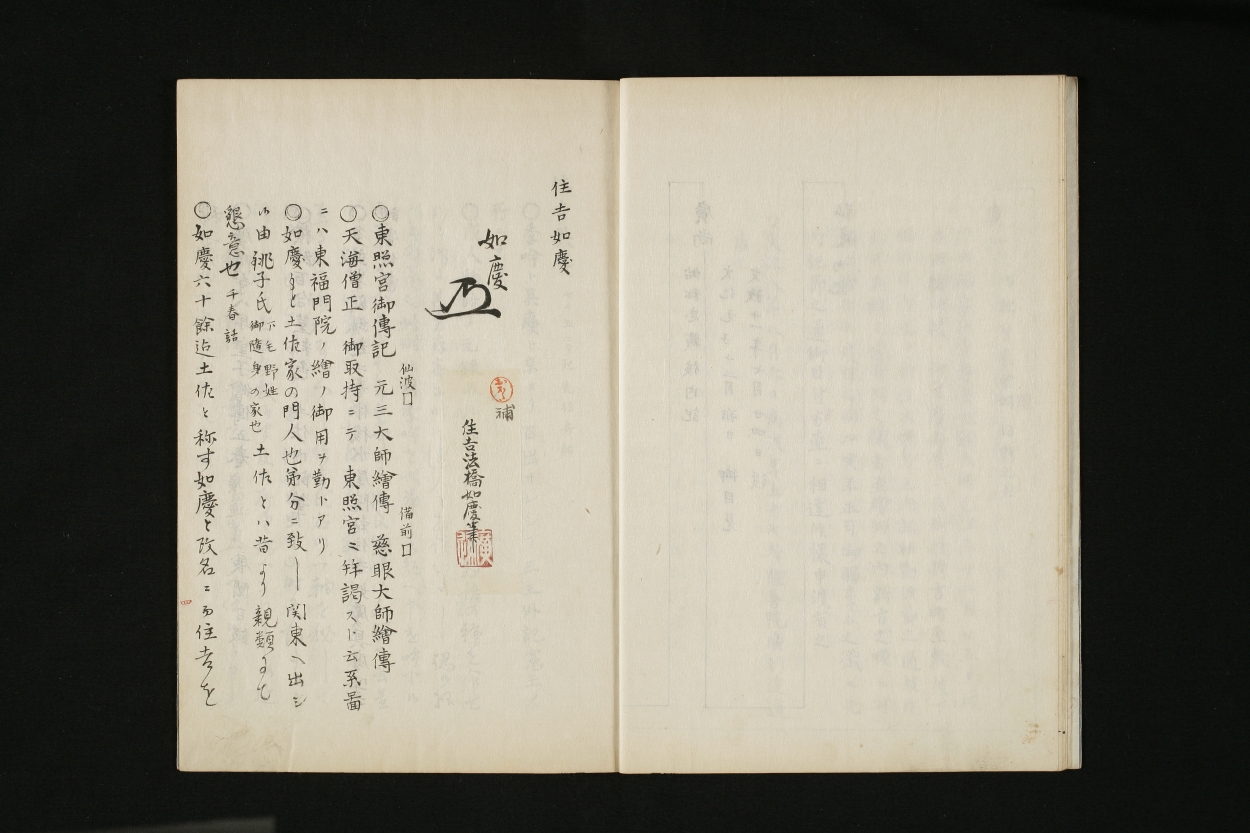 住吉如慶
如慶
補
住吉法橋如慶筆
仙波口
備前口
〇東照宮御傳記 元三大師繪傳 慈眼大師繪傳
〇天海僧正 御取持ニテ 東照宮ニ拜謁スト云系圖
ニハ東福門院ノ繪ノ御用ヲ勤トアリ
〇如慶もと土佐家の門人也弟分ニ致し関東へ出シ
由 銚子氏 下毛野姓 御随身の家也 土佐とハ昔より親類にて
懇意也 千春話
〇如慶六十餘迄土佐と称す如慶と改名して住吉を